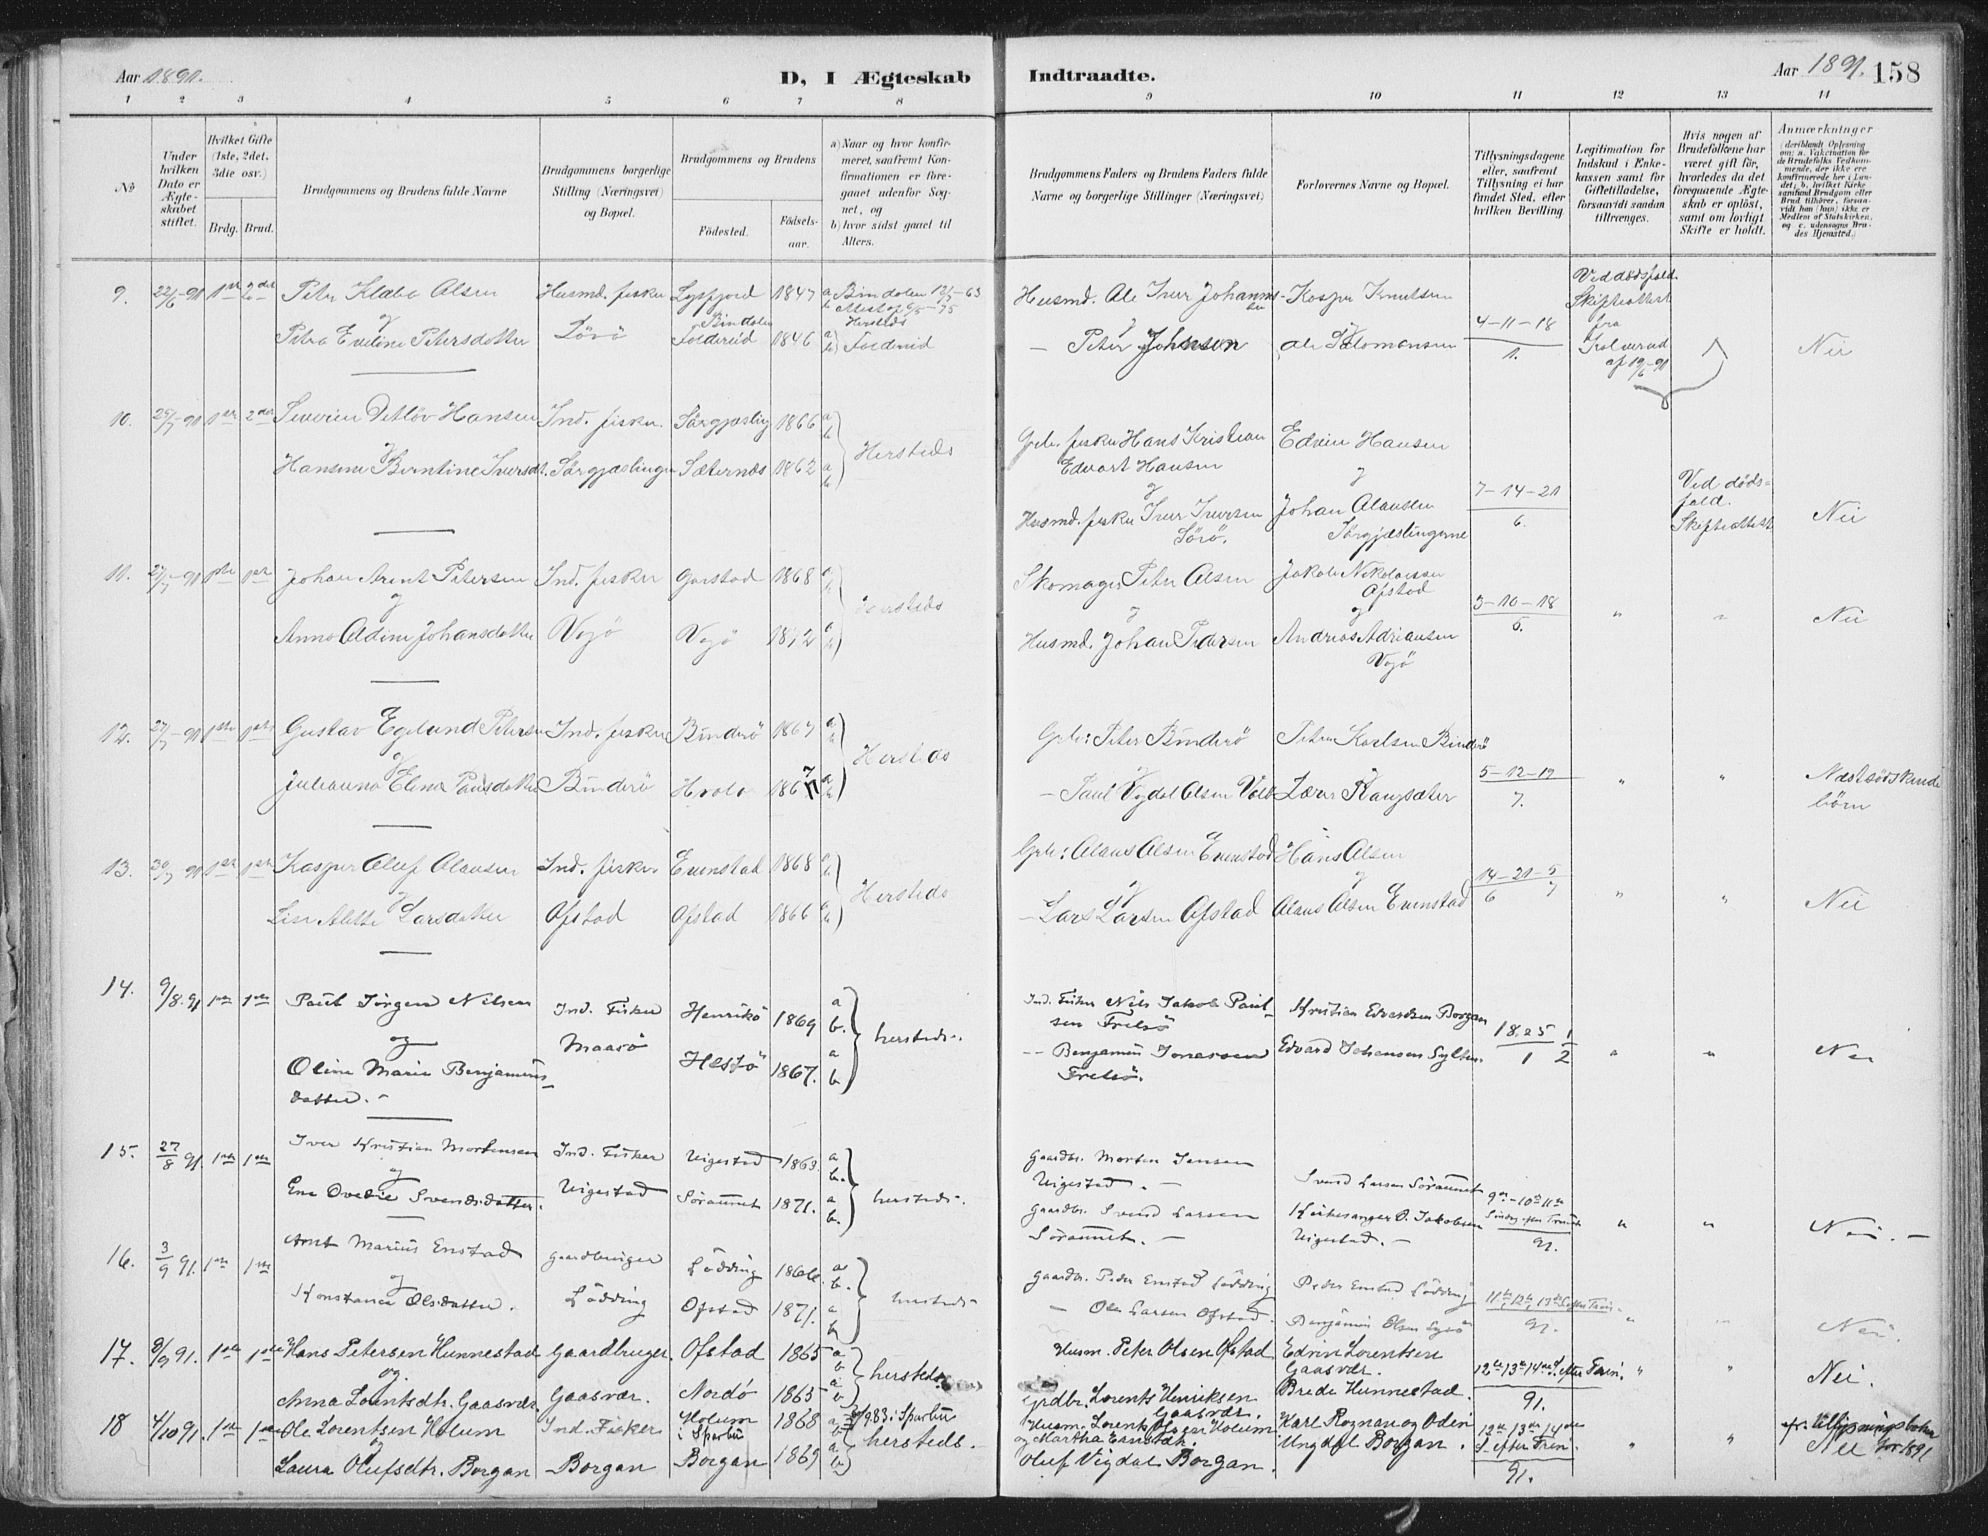 Aar 1891.
D, I Ægteskab Indtraadte.
Aar 1891. 158
1 2 3 4 5 6 7 8 9 10 11 12 13 14
No
Under hvilken Dato er Ægteskabet stiftet.
Hvilket Gifte (1ste, 2det, 3die osv.)
Brdg. Brud.
Brudgommens og Brudens fulde Navne
Brudgommens borgerlige Stilling (Næringsvei) og Bopæl.
Brudgommens og Brudens
Fødested.
Fødselsaar.
a) Naar og hvor konfirmeret, saafremt Konfirmationen er foregaaet udenfor Sognet, og
b) hvor sidst gaaet til Alters.
Brudgommens Faders og Brudens Faders fulde Navne og borgerlige Stillinger (Næringsvei)
Forlovernes Navne og Bopæl.
Tillysningsdagene eller, saafremt Tillysning ei har fundet Sted, efter hvilken Bevilling.
Legitimation for Indskud i Enkekassen samt for Giftetilladelse, forsaavidt saadan tiltrænges.
Hvis nogen af Brudefolkene har været gift før, hvorledes da det foregaaende Ægteskab er opløst, samt om lovligt Skifte er holdt.
Anmærkninger
(deriblandt Oplysning om: a. Vakcination for de Brudefolks Vedkommende, der ikke ere konfirmerede her i Landet; b. hvilket Kirkesamfund Brudgom eller Brud tilhører, forsaavidt han (hun) ikke er Medlem af Statskirken, og c. udensogns Brudes Hjemsted.)
9. 22/6-91 Peter Klæbo Olsen Husmd. fisker Lysfjord 1847 a Bindalen
Bindalen Hersteds
Petra Eveline Petersdatter Sörö Foldereid 1846 a b) Foldereid
Husmd. Ole Iver Johannessen Kasper Knutsen
og
— Peter Johnsen Ole Salomonsen
4-11-18
1.
Ved dødsfald. Skifteattest fra
Nei
10. 1ste 2det Severin Detlöv Hansen Ind. fisker Sörgjæsling 1866 a b
og Hersteds
Hansine Berntine Iversdt. Sörgjæslingen Sæternes 1862 a b
Grb. fisker Hans Kristian Edvart Hansen Edvin Hansen
og og
Husmd. fisker Iver Iversen Sörö. Johan Olausen Sörgjæslingerne
7-14-21
6.
Ved dödsfald. Skifteattest Nei
11. 27/7-91 1ste 1ste Johan Arent Petersen Ind. fisker 1868 a b
og Hersteds
Anna Aldine Johansdatter Vegö Vegö a b
Skomager Peter Olsen Jakob Nikolaisen Ofstad
og og
Husmd. Johan Pedersen Andreas Adriansen Vegö
3-10-18
5.
" " Nei
12. 27/7-91 1ste 1ste Gustav Egelund Petersen Ind. fisker Binderö 1867 a b
og Hersteds
Julianna Elina Paulsdatter Binderö 1867 a b
Grb: Peter Binderö Peter Karlsen Binderö
og og
— Paul Vigdal Olsen
5-12-19
7.
" " Næstsödskendebörn
13. 30/7 91 1ste 1ste Kasper Oluf Olausen Ind. fisker Evenstad 1868 a b
og Hersteds
Lise Alette Larsdatter Ofstad Ofstad 1866 a b
Grb: Olaus Olsen Evenstad Hans Olsen
og og
— Lars Larsen Ofstad Olaus Olsen Evenstad
14-21-5
6 7
" " Nei
14. 9/8.91 1ste 1ste Paul Jörgen Nilsen Ind. Fisker Henrikö 1869 a b.
og Maasö hersteds.
Oline Marie Benjaminsdatter. Helsö 1867. a b.
Ind. Fisker Nils Jakob Paulsen Frelsö Kristian Edvardsen Borgan
-- Benjamin Jonassen Frelsö. Edvard Johansen Sylten.
18.25 1
1 2
" " Nei
15. 27/8 91. 1ste 1ste Iver Kristian Mortensen Ind. Fisker Vigestad 1863. a b.
og Vigestad hersteds.
Ene Ovedie Svendsdatter. Söraunet 1871. a b.
Gaardbr. Morten Jensen Vigestad. — Svend Larsen Söraunet
Gaardbr. Svend Larsen Söraunet. — Kirkesanger O. Jakobsen Vigestad. —
9de-10de 11te Sindg. efter Trinit.
91.
" " Nei. —
16. 3/9 91. 1ste 1ste Arnt Marius Enstad Gaardbruger Lödding 1866. a b.
og Lödding hersteds
Konstance Olsdatter. Ofstad 1871. a b
Gaardbr. Peder Enstad Lödding Peder Enstad Lödding
— Ole Larsen Ofstad. Benjamin Olsen
11te 12te 13de S. efter Trin.
91.
" " Nei.
17. 8/9 91. 1ste 1ste Hans Petersen Hunnestad Gaardbruger Ofstad 1865 a b
og. hersteds.
Anna Lorentsdtr. Gaasvær Gaasvær. Nordö 1865 a b
Husm. Peter Olsen Ofstad Edvin Lorentsen Gaasvær.
Grdbr. Lorents Henriksen Gaasvær. Brede Hunnestad.
12te 13de 14de S. efter Trin.
91.
" " Nei.
18 4/10 91. 1ste 1ste Ole Lorentsen Holum Ind. Fisker Holum i Sparbu 1868 a i Sparbu
og b hersteds. -
Laura Olufsdtr. Borgan Borgan Borgan 1869 a b
Husm. Lorents Olsen Holum og Martha Karl Roznan og Odin
Oluf Vigdal Borgan. Ungdal Borgan.
12te 13de 14de S. efter Trin.
91.
" " cfr. tillysningsboka for 1891
Nei